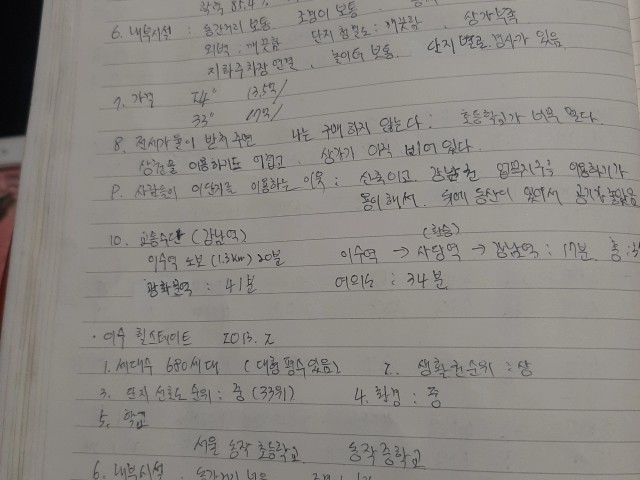 학력 85.4%
6. 내부시설 : 동간거리 보통 조경이 보통
외벽 : 깨끗함 단지 청결도 : 깨끗함. 상가 부족
지하주차장 연결, 놀이터 보통. 단지 별로 경사가 있음
7. 가격 24" 13.5억/
33" 17억/
8. 전세가율이 받쳐주면 나는 구매하지 않는다 : 초등학교가 너무 멀다.
상권을 이용하기도 어렵고, 상가가 아직 비어있다.
9. 사람들이 이단지를 이용하는 이유 : 신축이고 강남권 업무지구를 이용하기가
용이해서. 뒤에 동산이 있어서 공기가 좋음
10. 교통수단 (강남역) (환승)
이수역 도보 (1.3km) 20분 이수역 → 사당역 → 강남역 : 17분 총 :
광화문역 : 41분 여의도 : 34분
· 이수 힐스테이트 2013. 2
1. 세대수 680세대 (대형 평수있음) 2. 생활권순위 : 상
3. 단지 선호도 순위 : 중 (33위) 4. 환경 : 중
5. 학교
서울 동작 초등학교 동작 중학교
6. 내부시설 동간거리